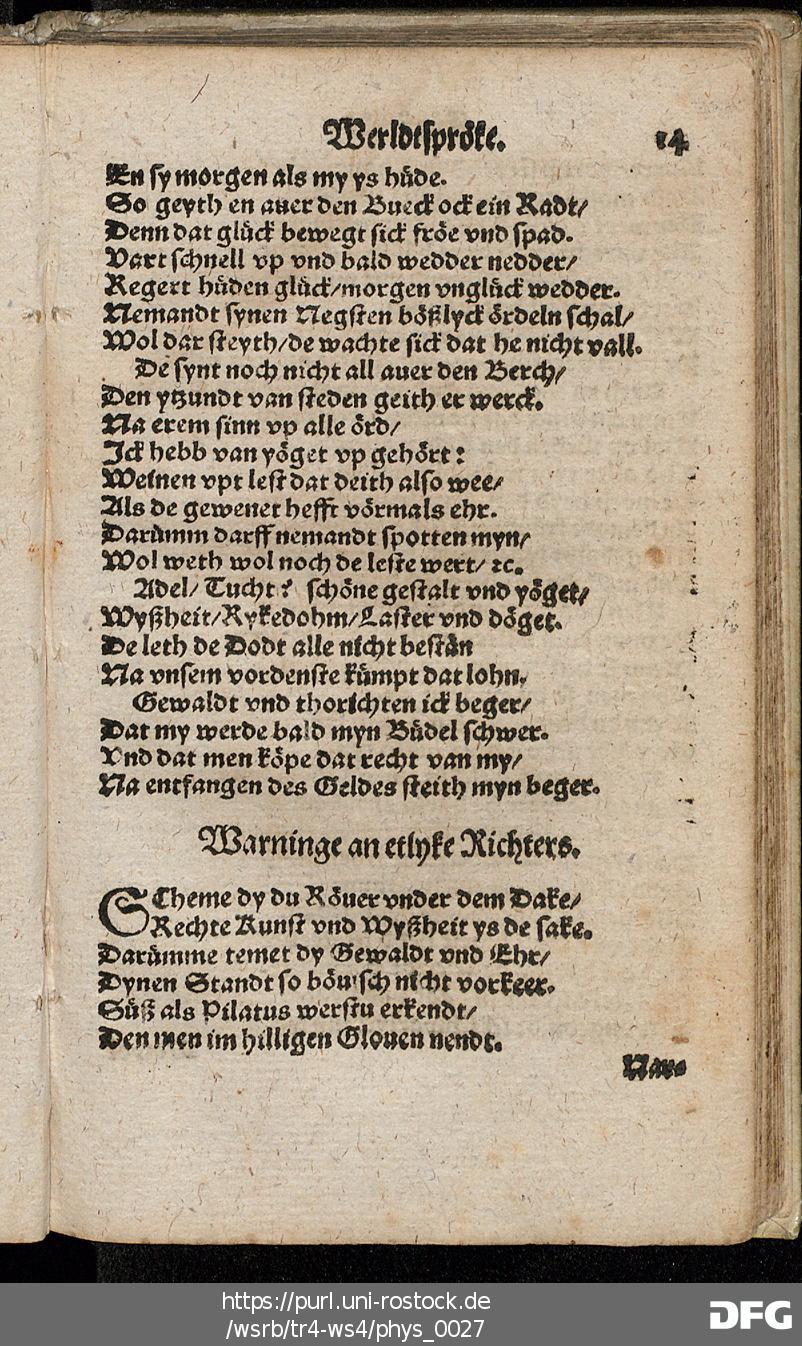 Werldtspröke. 14
En sy morgen als my ys hüde.
So geyth en auer den Bueck ock ein Radt/
Denn dat glück bewegt sick fröe vnd spad.
Vart schnell vp vnd bald wedder nedder/
Regert hüden glück/morgen vnglück wedder.
Nemandt synen Negsten bößlyck ördeln schal/
Wol dar steyth/de wachte sick dat he nicht vall.
De synt noch nicht all auer den Berch/
Den ytzundt van steden geith er werck.
Na erem sinn vp alle örd/
Ick hebb van yöget vp gehört:
Weinen vpt lest dat deith also wee/
Als de gewenet hefft vörmals ehr.
Darümm darff nemandt spotten myn/
Wol weth wol noch de leste wert/ ꝛc.
Adel/ Tucht? schöne gestalt vnd yöget/
Wyßheit/Rykedohm/Laster vnd döget.
De leth de Dodt alle nicht bestän
Na vnsem vordenste kümpt dat lohn.
Gewaldt vnd thorichten ick beger/
Dat my werde bald myn Büdel schwer.
Vnd dat men köpe dat recht van my/
Na entfangen des Geldes steith myn beger.
Warninge an etlyke Richters.
SCheme dy du Röuer vnder dem Dake/
Rechte Kunst vnd Wyßheit ys de sake.
Darümme temet dy Gewaldt vnd Ehr/
Dynen Standt so böuisch nicht vorkeer.
Süß als Pilatus werstu erkendt/
Den men im hilligen Glouen nendt.
Nar-
https://purl.uni-rostock.de
/wsrb/tr4-ws4/phys_0027
DFG